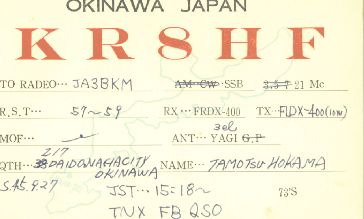 OKINAWA JAPAN
KR8HF
TO RADEO··· JA3BKM AM CW SSB 3.5 7 21 Mc
R.S.T··· 57~59 RX··· FRDX-400 TX··· FLDX-400(10W)
MOF··· ANT··· YAGI G.P
3el
217
QTH··· 38 DAIDO NAHA CITY NAME··· TAMOTSU HOKAMA
OKINAWA
JST··· 15:18~ 73'S
TNX FB QSO